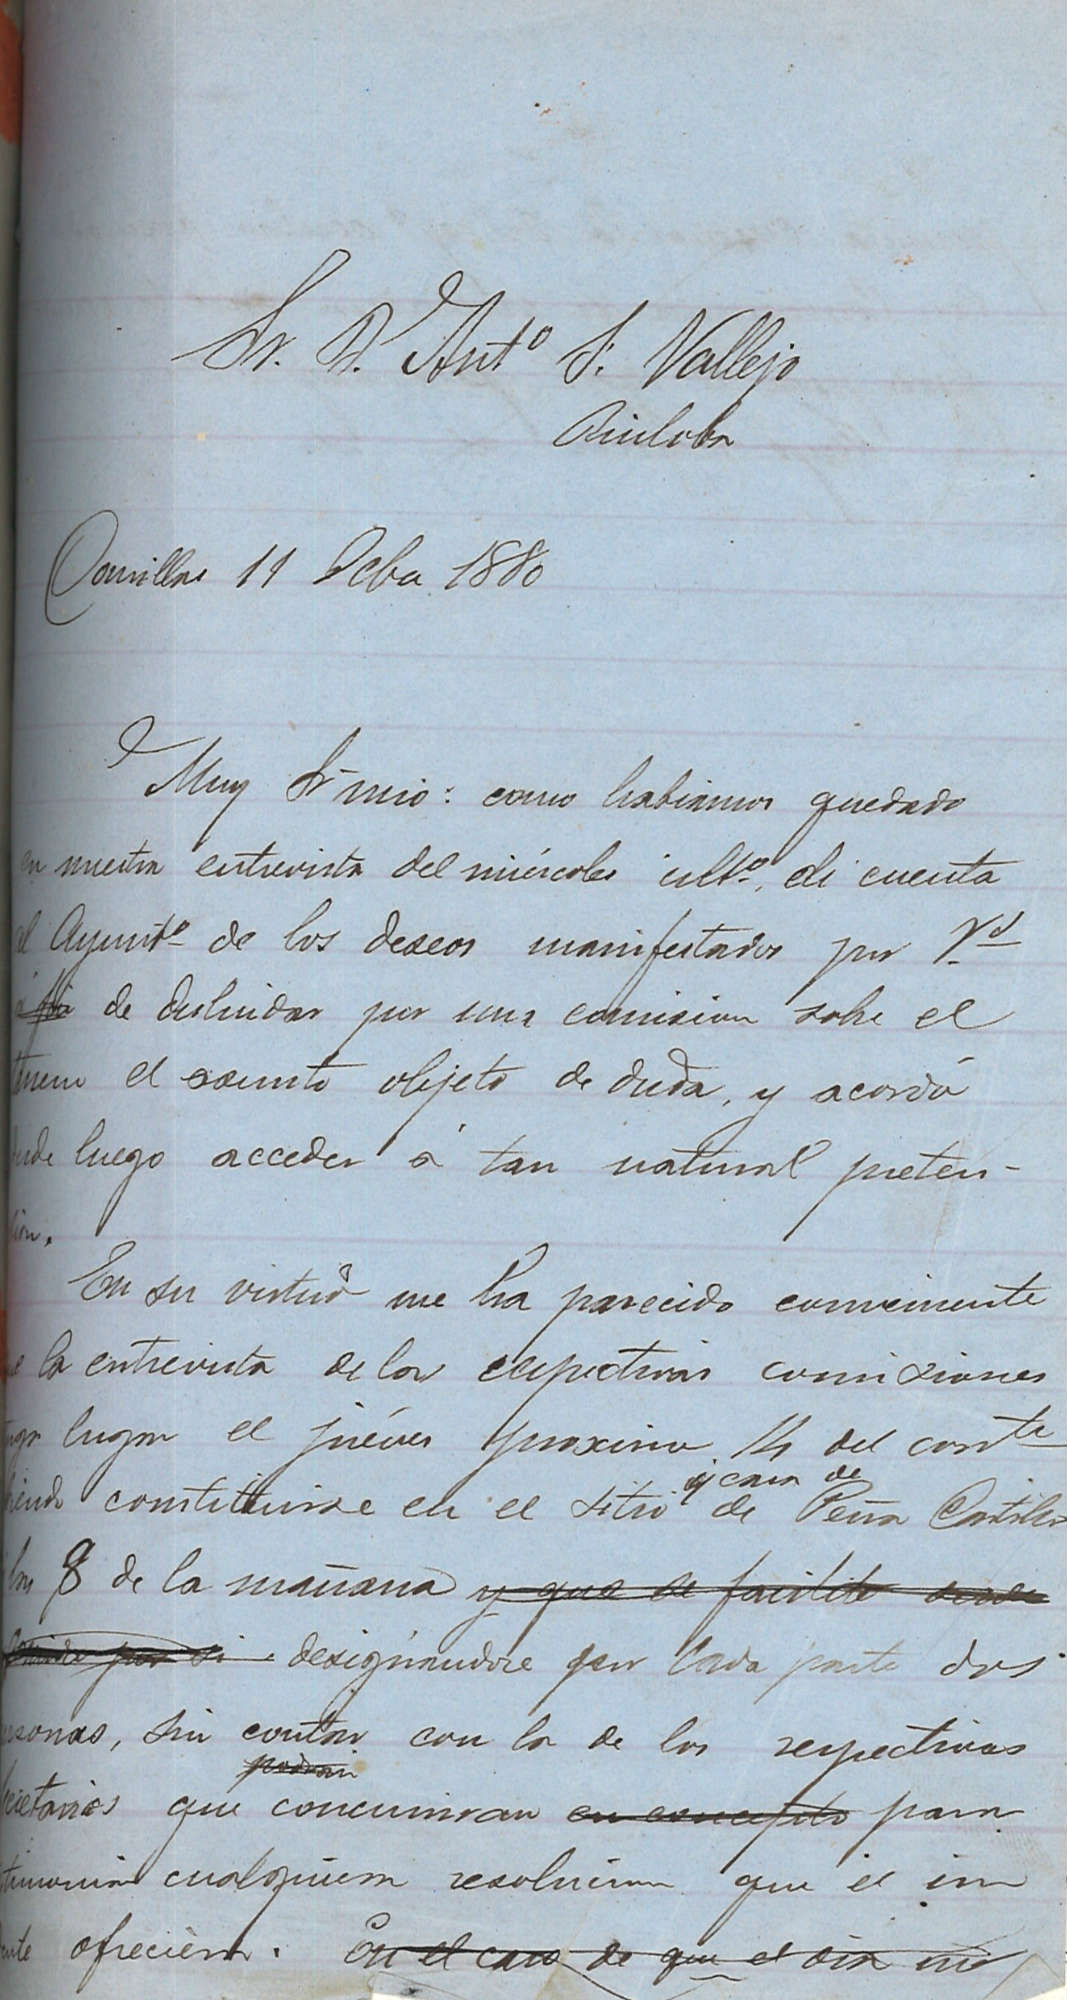 Sr. D. Antº S. Vallejo
Ruiloba
Comillas 11 Octbe 1880
Muy Sr mio: como habiamos quedado
en nuestra entrevista del miércoles ultº. di cuenta
al Ayuntº de los deseos manifestados por Vd
de deslindar por una comision sobre el
el asunto objeto de duda, y acordó
desde luego acceder á tan natural preten-
sion.
En su virtud me ha parecido conveniente
que la entrevista de las respectivas comisiones
tenga lugar el juéves proximo 14 del corrte
constituirse en el sitio y casa de de Peña Castillo
a las 8 de la mañana y que se facilite
por si designandose por cada parte dos
personas, sin contar con la de los respectivos
podrán
secretarios que concurriran en concepto para
testimoniar cualquiera resolucion que el
ofreciera. En el caso de que el dia